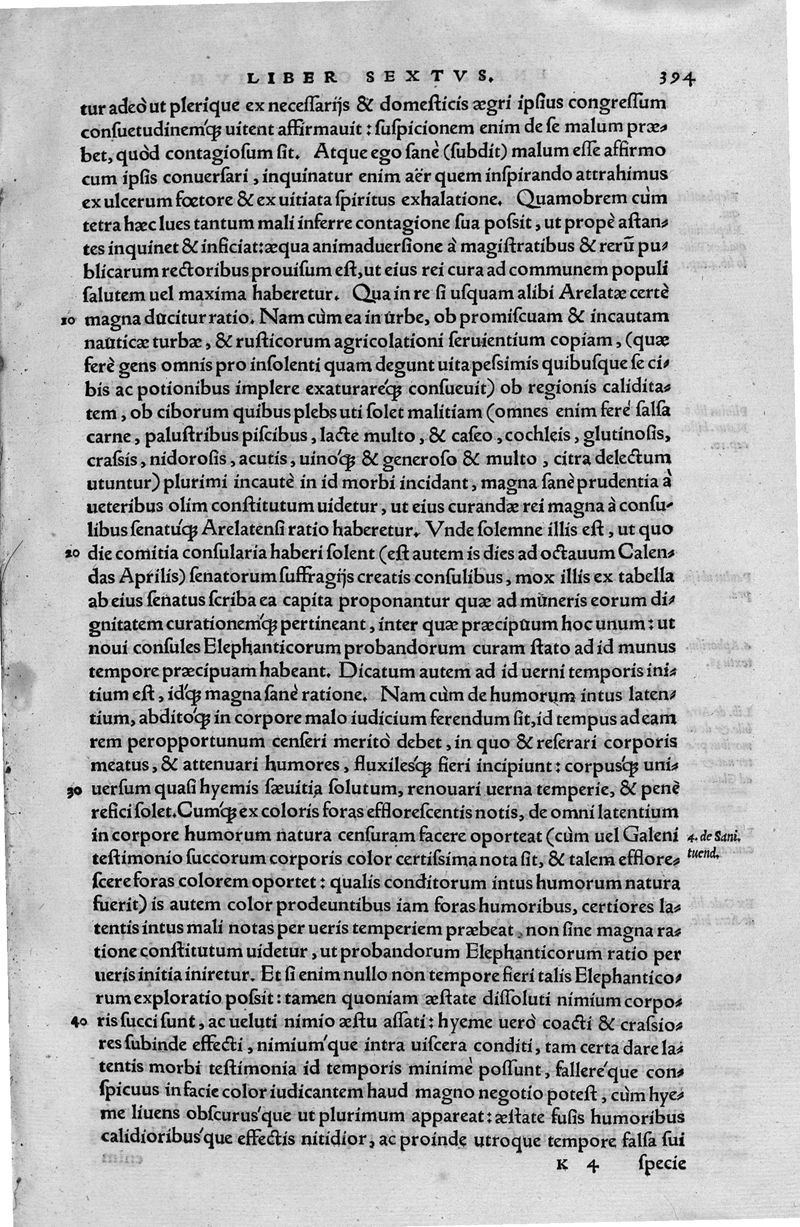 LIBER SEXTVS. 394
tur adeò ut plerique ex neceſſarijs & domeſticis ægri ipſius congreſſum
conſuetudinemq́ꝫ uitent affirmauit : ſuſpicionem enim de ſe malum præ⸗
bet, quòd contagioſum ſit. Atque ego ſanè (ſubdit) malum eſſe affirmo
cum ipſis conuerſari, inquinatur enim aër quem inſpirando attrahimus
ex ulcerum fœtore & ex uitiata ſpiritus exhalatione. Quamobrem cùm
tetra hæc lues tantum mali inferre contagione ſua poſsit, ut propè aſtan⸗
tes inquinet & inficiat: æqua animaduerſione à magiſtratibus & rerũ pu⸗
blicarum rectoribus prouiſum eſt, ut eius rei cura ad communem populi
ſalutem uel maxima haberetur. Qua in re ſi uſquam alibi Arelatæ certè
10 magna ducitur ratio. Nam cùm ea in urbe, ob promiſcuam & incautam
nauticæ turbæ, & ruſticorum agricolationi ſeruientium copiam, (quæ
ferè gens omnis pro inſolenti quam degunt uita peſsimis quibuſque ſe ci⸗
bis ac potionibus implere exaturareq́ꝫ conſueuit) ob regionis calidita⸗
tem, ob ciborum quibus plebs uti ſolet malitiam (omnes enim ferè ſalſa
carne, paluſtribus piſcibus, lacte multo, & caſeo, cochleis, glutinoſis,
craſsis, nidoroſis, acutis, uinoq́ꝫ & generoſo & multo, citra delectum
utuntur) plurimi incautè in id morbi incidant, magna ſanè prudentia à
ueteribus olim conſtitutum uidetur, ut eius curandæ rei magna à conſu⸗
libus ſenatuq́ꝫ Arelatenſi ratio haberetur. Vnde ſolemne illis eſt, ut quo
20 die comitia conſularia haberi ſolent (eſt autem is dies ad octauum Calen⸗
das Aprilis) ſenatorum ſuffragijs creatis conſulibus, mox illis ex tabella
ab eius ſenatus ſcriba ea capita proponantur quæ ad muneris eorum di⸗
gnitatem curationemq́ꝫ pertineant, inter quæ præcipuum hoc unum : ut
noui conſules Elephanticorum probandorum curam ſtato ad id munus
tempore præcipuam habeant. Dicatum autem ad id uerni temporis ini⸗
tium eſt, idq́ꝫ magna ſanè ratione. Nam cùm de humorum intus laten⸗
tium, abditoq́ꝫ in corpore malo iudicium ferendum ſit, id tempus ad eam
rem peropportunum cenſeri meritò debet, in quo & reſerari corporis
meatus, & attenuari humores, fluxilesq́ꝫ fieri incipiunt : corpusq́ꝫ uni⸗
30 uerſum quaſi hyemis ſæuitia ſolutum, renouari uerna temperie, & penè
refici ſolet. Cumq́ꝫ ex coloris foras effloreſcentis notis, de omni latentium
in corpore humorum natura cenſuram facere oporteat (cùm uel Galeni 4. de Sani.
teſtimonio ſuccorum corporis color certiſsima nota ſit, & talem efflore⸗ tuend.
ſcere foras colorem oportet : qualis conditorum intus humorum natura
fuerit) is autem color prodeuntibus iam foras humoribus, certiores la⸗
tentis intus mali notas per ueris temperiem præbeat, non ſine magna ra⸗
tione conſtitutum uidetur, ut probandorum Elephanticorum ratio per
ueris initia iniretur. Et ſi enim nullo non tempore fieri talis Elephantico⸗
rum exploratio poſsit : tamen quoniam æſtate diſſoluti nimium corpo⸗
40 ris ſucci ſunt, ac ueluti nimio æſtu aſſati : hyeme uerò coacti & craſsio⸗
res ſubinde effecti, nimium'que intra uiſcera conditi, tam certa dare la⸗
tentis morbi teſtimonia id temporis minimè poſſunt, fallere'que con⸗
ſpicuus in facie color iudicantem haud magno negotio poteſt, cùm hye⸗
me liuens obſcurus'que ut plurimum appareat : æſtate fuſis humoribus
calidioribus'que effectis nitidior, ac proinde utroque tempore falſa ſui
K 4 ſpecie